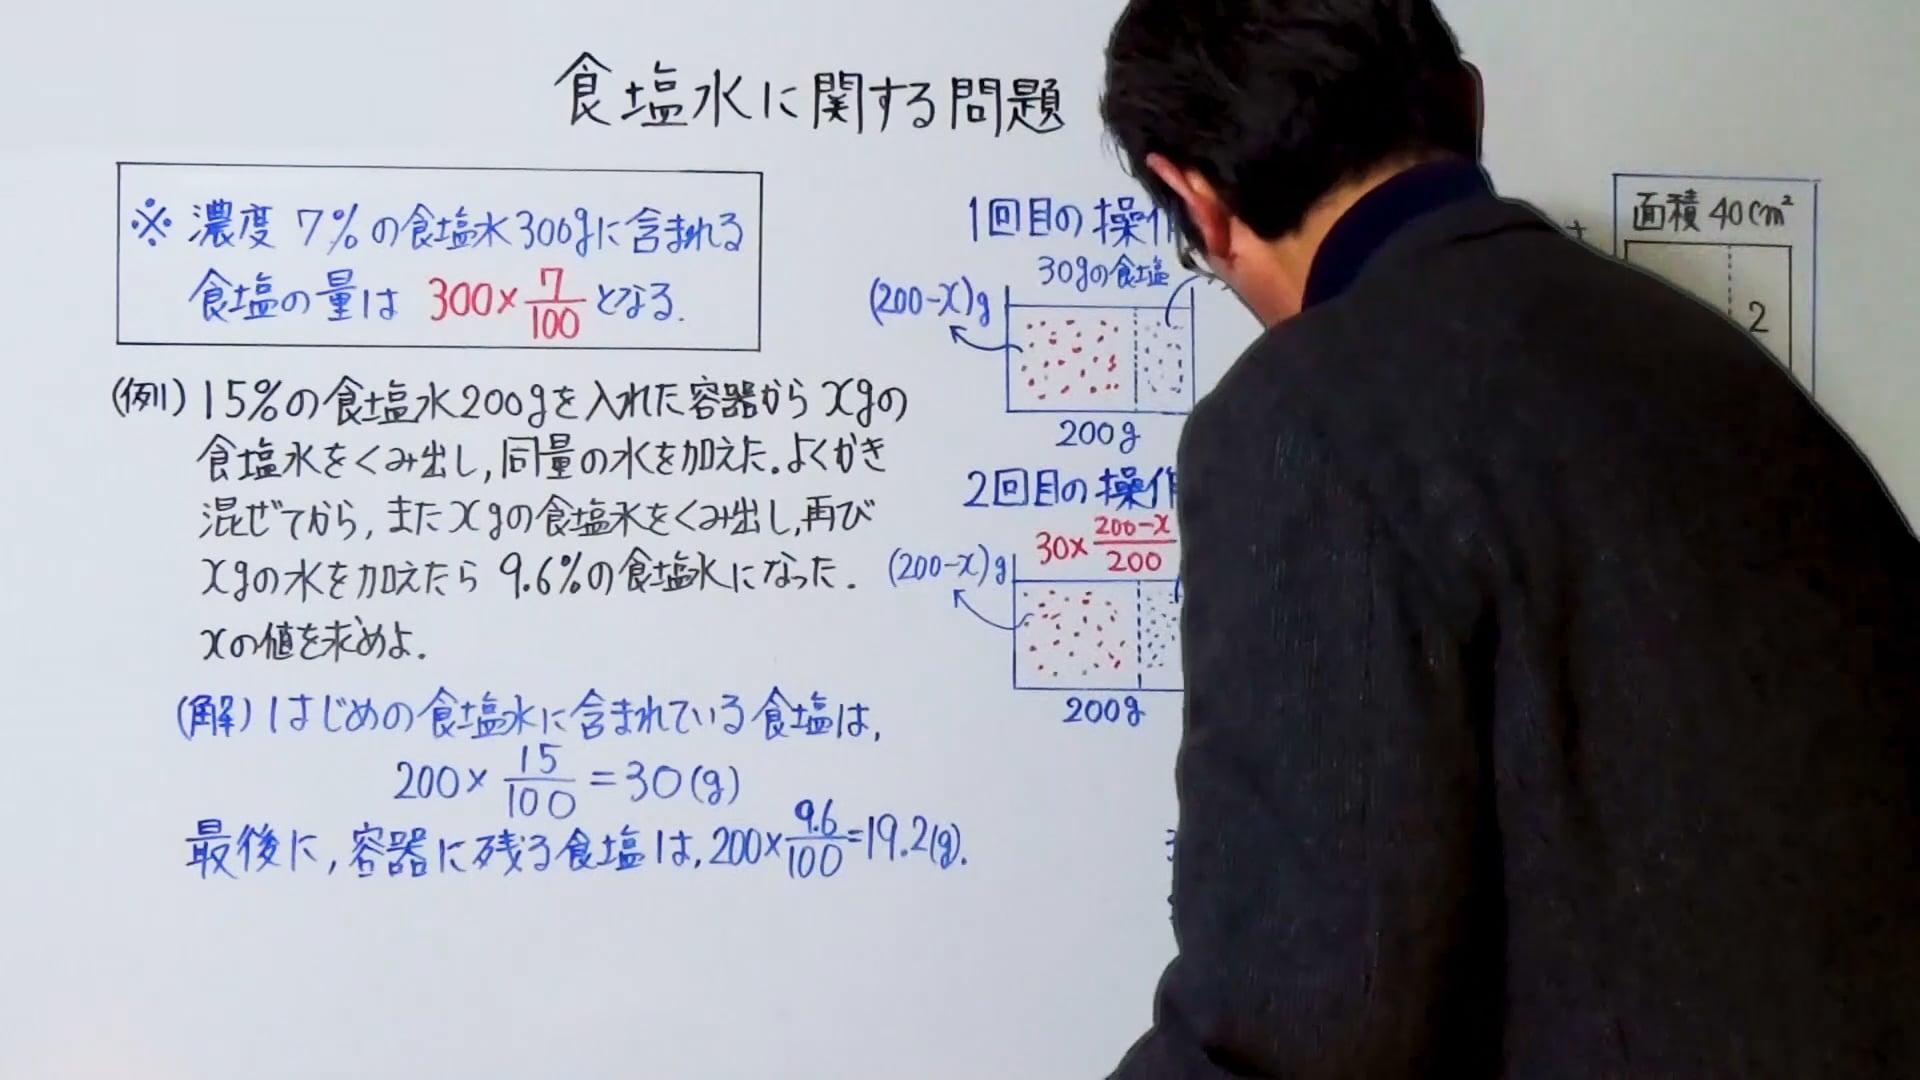 食塩水に関する問題
※ 濃度 7%の食塩水300gに含まれる
食塩の量は 300×7/100 となる.
(例) 15%の食塩水200gを入れた容器から xgの
食塩水をくみ出し,同量の水を加えた.よくかき
混ぜてから,またxgの食塩水をくみ出し,再び
xgの水を加えたら 9.6%の食塩水になった.
xの値を求めよ.
(解) はじめの食塩水に含まれている食塩は,
200×15/100=30(g)
最後に,容器に残る食塩は,200×9.6/100=19.2(g).
1回目の操作
30gの食塩
(200-x)g
200g
2回目の操作
30×200-x/200
(200-x)g
200g
面積 40cm²
2